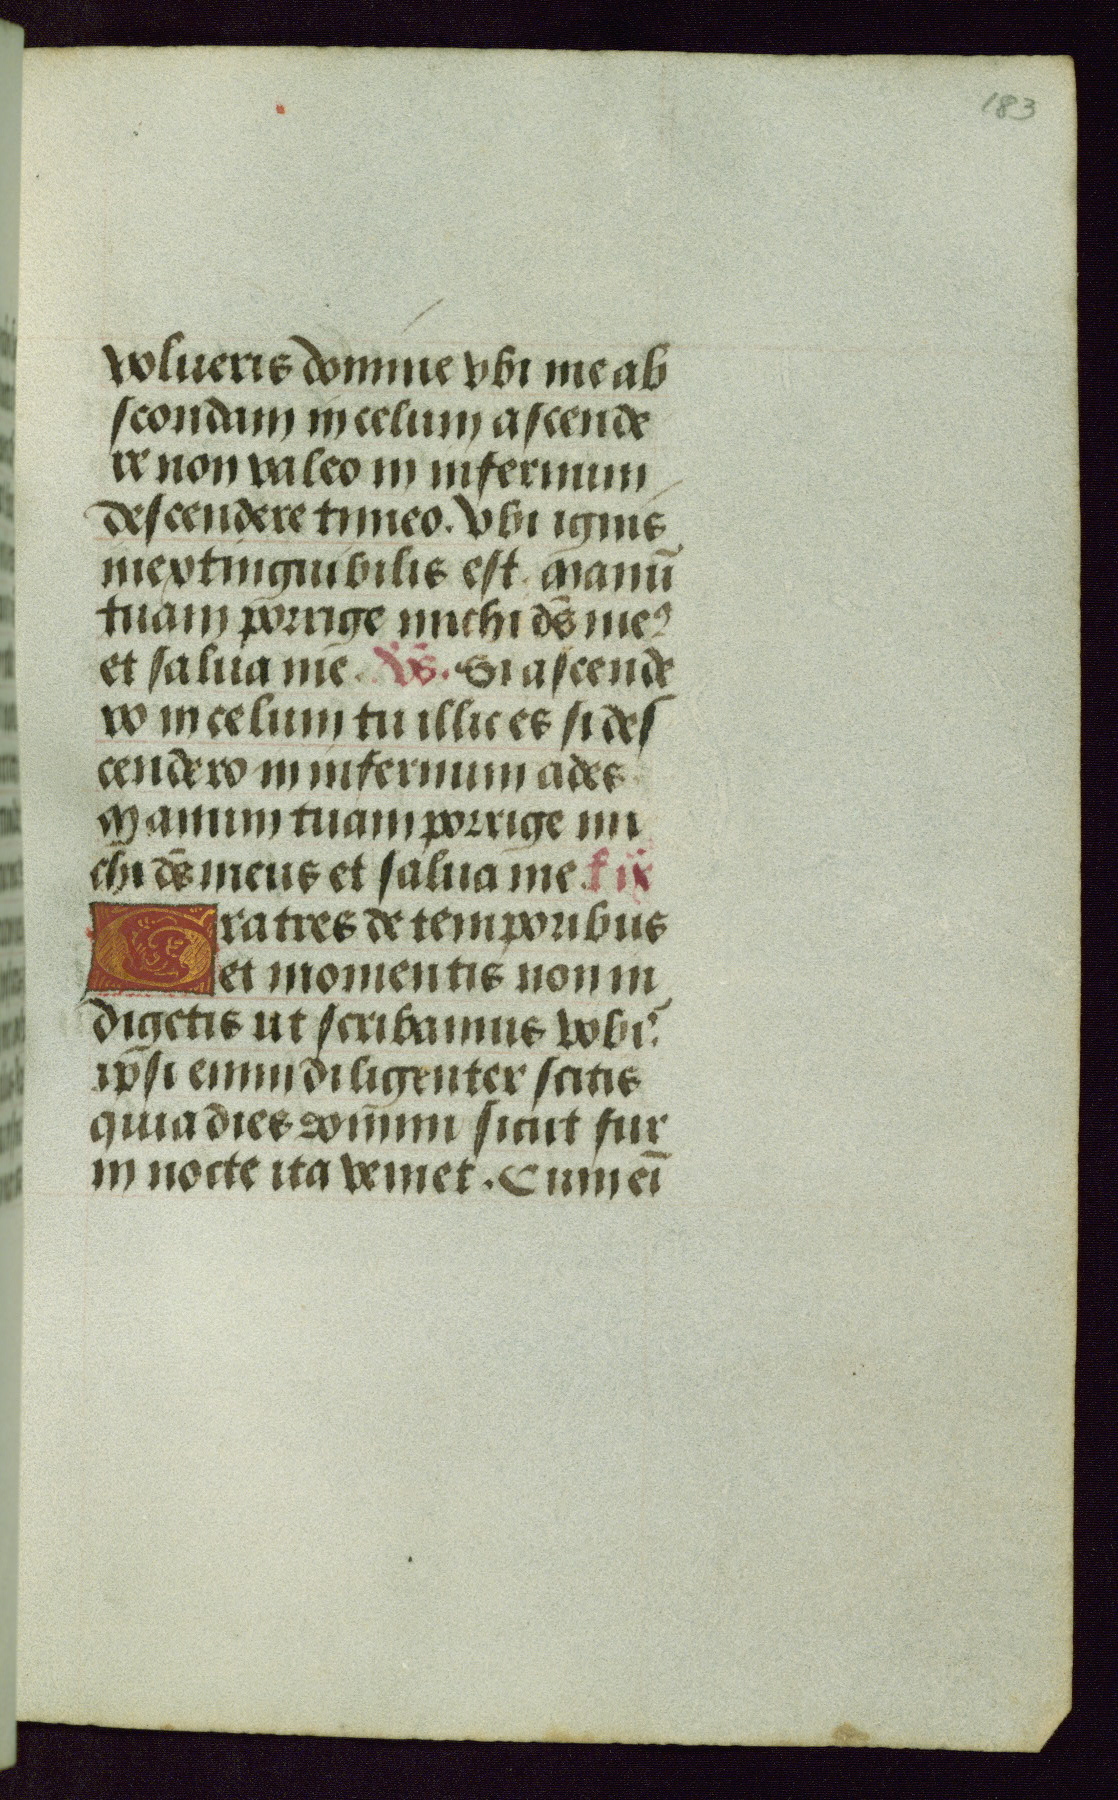 183
volueris domine vbi me ab
scondam in celum ascende
re non valeo in infernum
descendere timeo. Vbi ignis
inextinguibilis est. Manū
tuam porrige michi dṡ meꝰ
et salua me. Vs̄. Si ascende
ro in celum tu illic es si des
cendero in infernum ades
Manum tuam porrige mi
chi ds̄ meus et salua me. ł ix
Fratres de temporibus
et momentis non in
digetis ut scribamus vobiꝰ.
ip̄si enim diligenter scitis
quia dies dom̄ini sicut fur
in nocte ita veniet. Cum eī